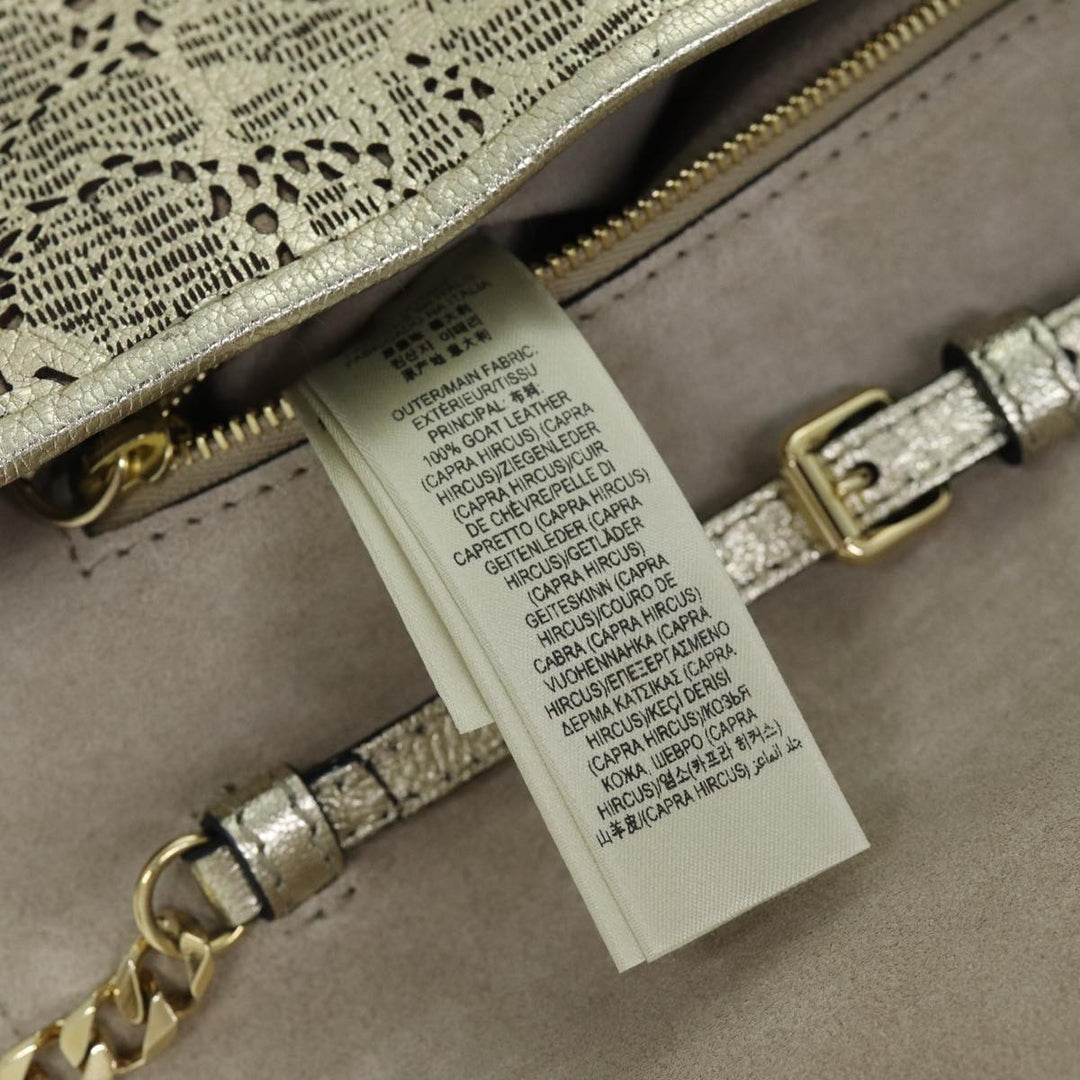 ITALIA
原産国 義大利
원산지 이태리
原产地 意大利
OUTER/MAIN FABRIC:
EXTÉRIEUR/TISSU
PRINCIPAL 布料:
100% GOAT LEATHER
(CAPRA HIRCUS) (CAPRA
HIRCUS)/ZIEGENLEDER
(CAPRA HIRCUS)/CUIR
DE CHÈVRE/PELLE DI
CAPRETTO (CAPRA HIRCUS)
GEITENLEDER (CAPRA
HIRCUS)/GETLÄDER
(CAPRA HIRCUS)
GEITESKINN (CAPRA
HIRCUS)/COURO DE
CABRA (CAPRA HIRCUS)
VUOHENNAHKA (CAPRA
HIRCUS)/ΕΠΕΞΕΡΓΑΣΜΕΝΟ
ΔΕΡΜΑ ΚΑΤΣΙΚΑΣ (CAPRA
HIRCUS)/KEÇİ DERİSİ
(CAPRA HIRCUS)/КОЗЬЯ
КОЖА, ШЕВРО (CAPRA
HIRCUS)/염소(카프라 히커스)
山羊皮/(CAPRA HIRCUS) جلد الماعز